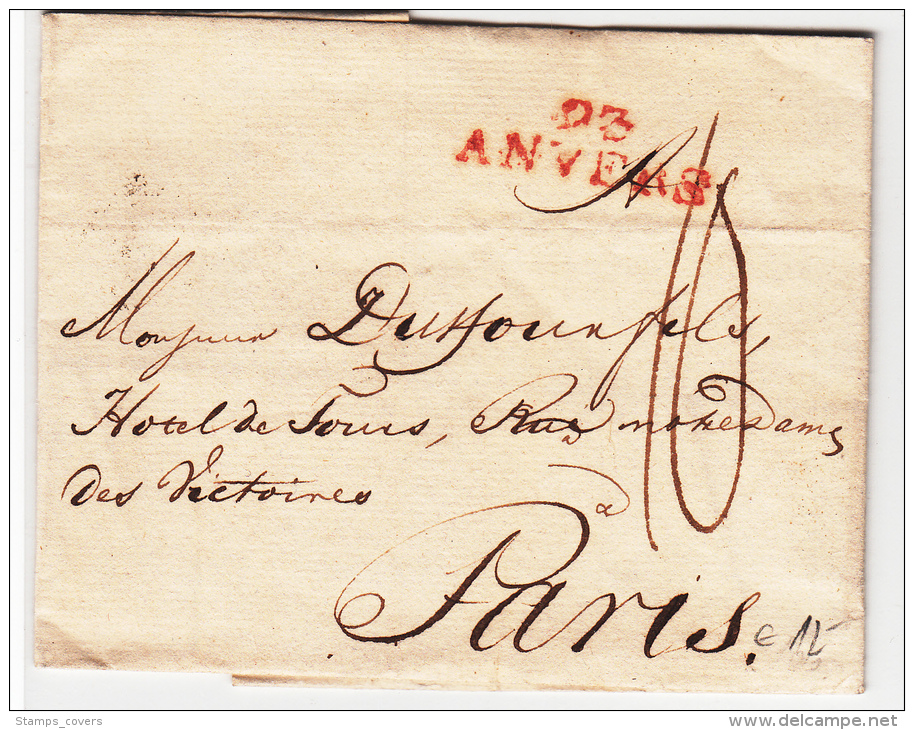 93
ANVERS
10
Monsieur Duffour fels,
Hotel de Tours, Rue notre Dame
des Victoires
a
Paris.
€ 12
Stamps_covers
© delcampe.net